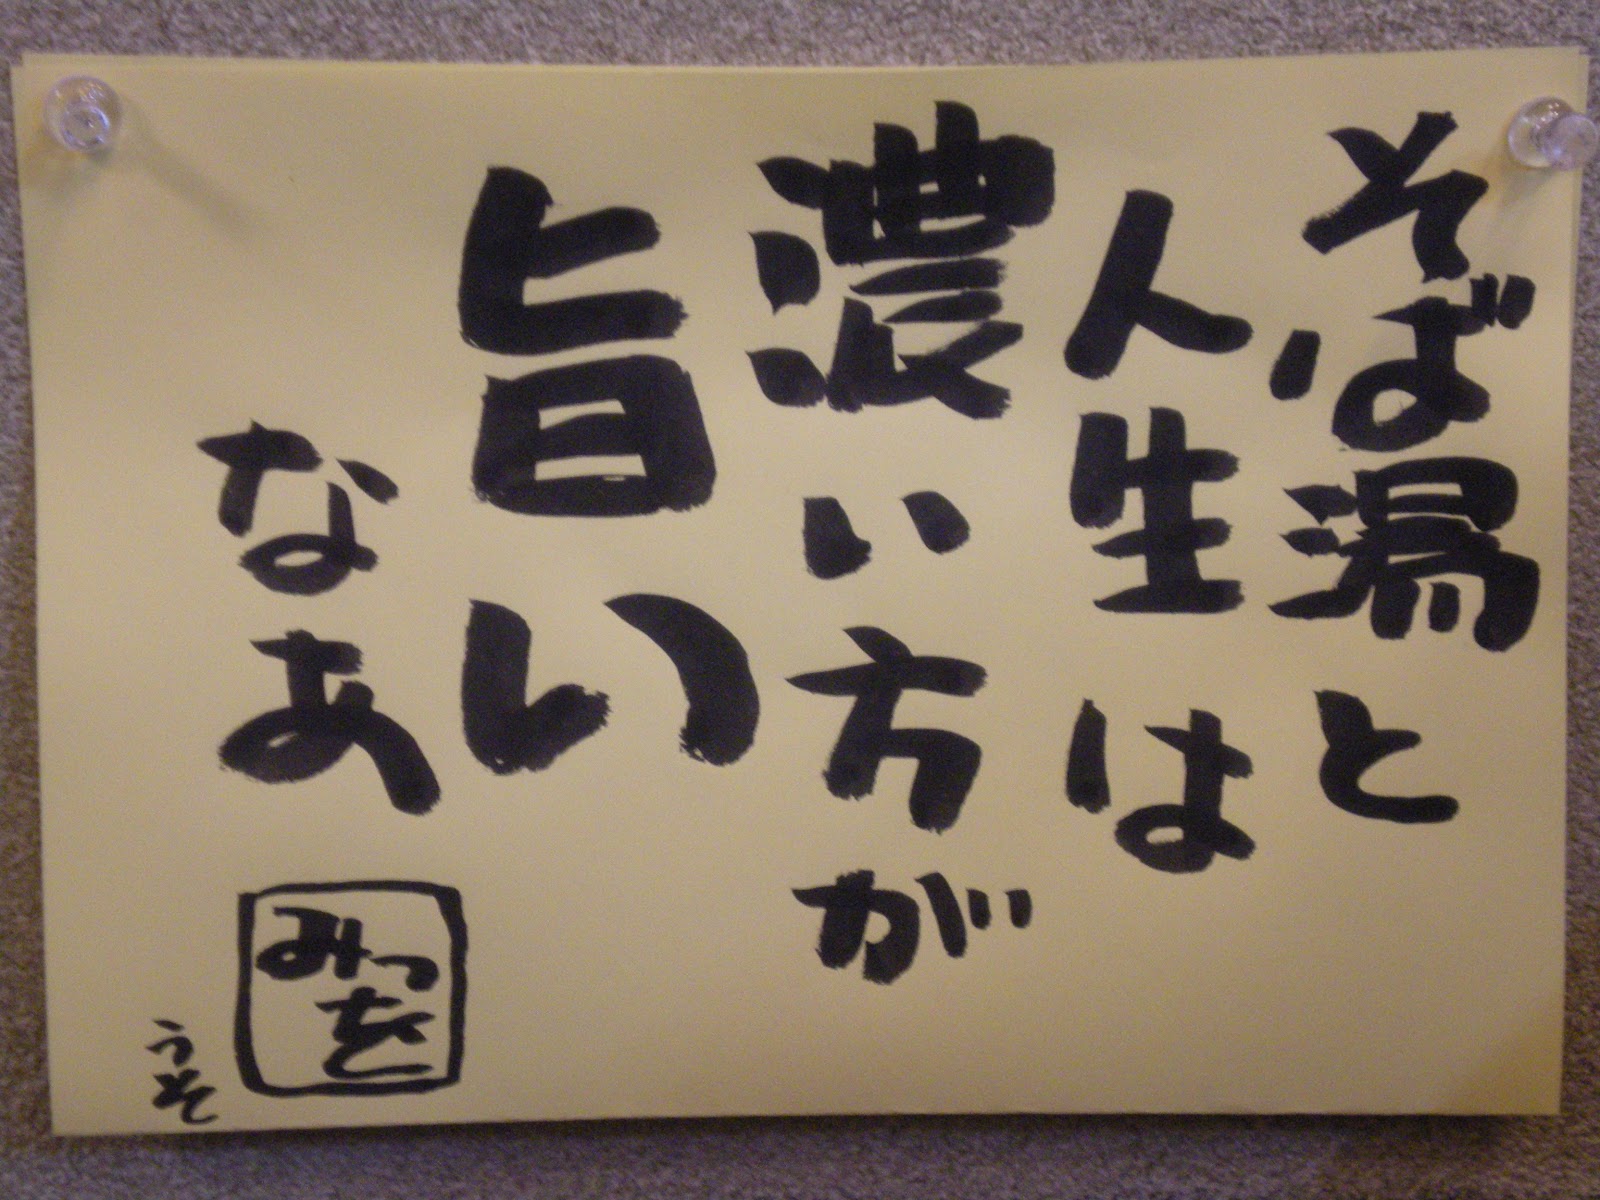 そば湯と
人生は
濃い方が
旨い
なあ
みつを
うそ